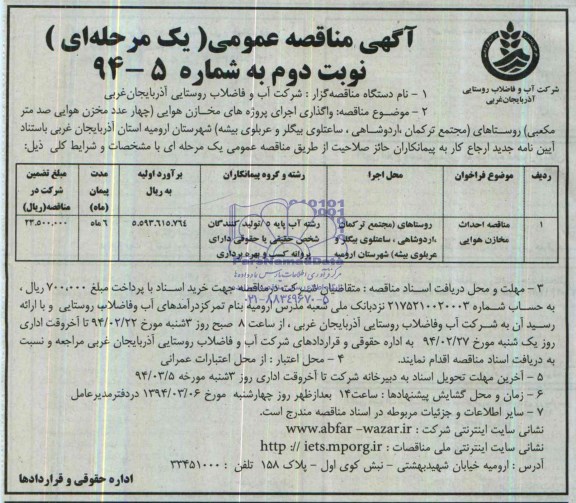 آگهی مناقصه عمومی( یک مرحله‌ای )
نوبت دوم به شماره ۵ – ۹۴
شرکت آب و فاضلاب روستایی
آذربایجان‌غربی
۱ – نام دستگاه مناقصه‌گزار : شرکت آب و فاضلاب روستایی آذربایجان‌غربی
۲ – موضوع مناقصه: واگذاری اجرای پروژه های مخازن هوایی (چهار عدد مخزن هوایی صد متر
مکعبی) روستاهای (مجتمع ترکمان ،اردوشاهی ، ساعتلوی بیگلر و عربلوی بیشه) شهرستان ارومیه استان آذربایجان غربی باستناد
آیین نامه جدید ارجاع کار به پیمانکاران حائز صلاحیت از طریق مناقصه عمومی یک مرحله ای با مشخصات و شرایط کلی ذیل:
ردیف
موضوع فراخوان
محل اجرا
رشته و گروه پیمانکاران
برآورد اولیه به ریال
مدت پیمان (ماه)
مبلغ تضمین شرکت در مناقصه(ریال)
۱
مناقصه احداث مخازن هوایی
روستاهای (مجتمع ترکمان ،اردوشاهی ، ساعتلوی بیگلر و عربلوی بیشه) شهرستان ارومیه
رشته آب پایه ۵ /تولید کنندگان شخص حقیقی یا حقوقی دارای پروانه کسب و بهره برداری
۵.۵۹۳.۶۱۵.۷۶۴
۶ ماه
۲۳.۵۰۰.۰۰۰
ParsNamadData
۰۲۱-۸۸۳۴۹۶۷۰-۵
۳ – مهلت و محل دریافت اسناد مناقصه : متقاضیان شرکت مناقصه جهت خرید اسناد با پرداخت مبلغ ۷۰۰,۰۰۰ ریال ,
به حساب شماره ۲۱۷۵۲۱۰۰۲۰۰۰۳ نزدبانک ملی شعبه مدرس ارومیه بنام تمرکزدرآمدهای آب وفاضلاب روستایی و با ارائه
رسید آن به شرکت آب وفاضلاب روستایی آذربایجان غربی ، از ساعت ۸ صبح روز ۳شنبه مورخ ۹۴/۰۲/۲۲ تا آخروقت اداری
روز یک شنبه مورخ ۹۴/۰۲/۲۷ به اداره حقوقی و قراردادهای شرکت آب و فاضلاب روستایی آذربایجان غربی مراجعه و نسبت
به دریافت اسناد مناقصه اقدام نمایند. ۴ – محل اعتبار : از محل اعتبارات عمرانی
۵ – آخرین مهلت تحویل اسناد به دبیرخانه شرکت تا آخروقت اداری روز ۳شنبه مورخه ۹۴/۰۳/۵
۶ – زمان و محل گشایش پیشنهادها : ساعت۱۴ بعدازظهر روز چهارشنبه مورخ ۱۳۹۴/۰۳/۰۶ دردفترمدیرعامل
۷ – سایر اطلاعات و جزئیات مربوطه در اسناد مناقصه مندرج است.
نشانی سایت اینترنتی شرکت : www.abfar -wazar.ir
نشانی سایت اینترنتی ملی مناقصات : http :// iets.mporg.ir
آدرس : ارومیه خیابان شهیدبهشتی – نبش کوی اول – پلاک ۱۵۸ تلفن : ۳۳۴۵۱۰۰۰
اداره حقوقی و قراردادها